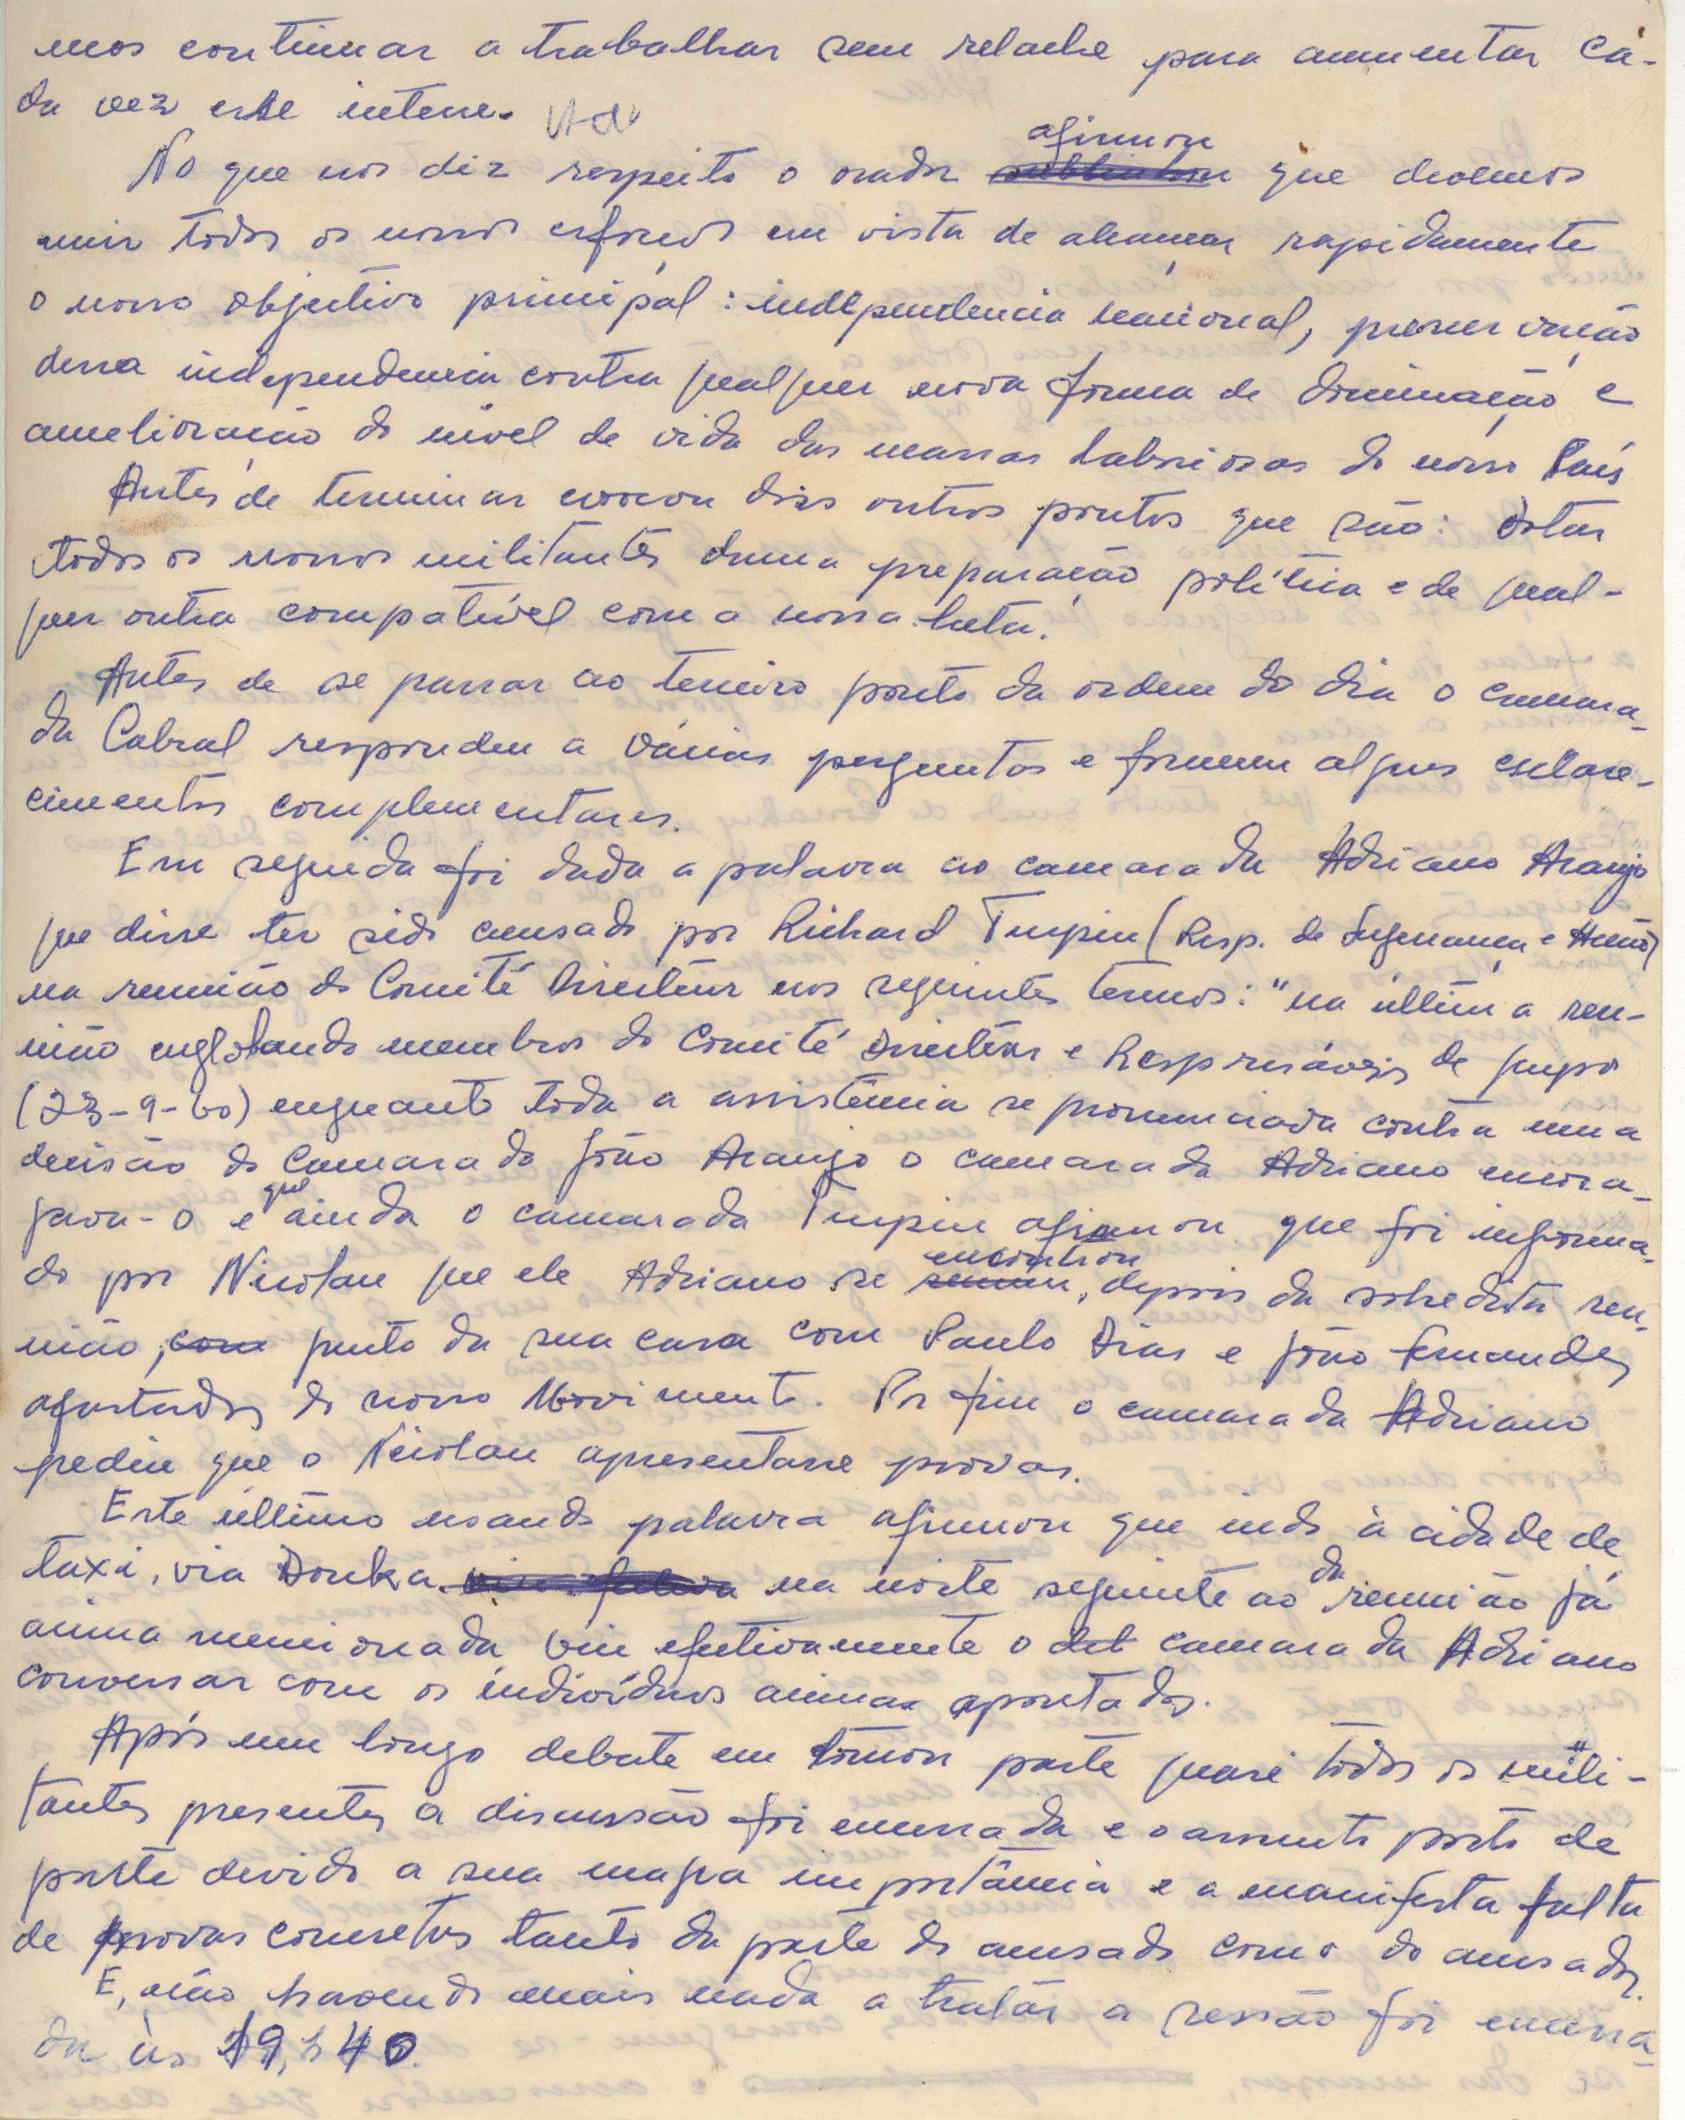 mos continuar a trabalhar sem relache para aumentar ca-
da vez esse interesse.
No que nos diz respeito o orador afirmou que devemos
unir todos os nossos esforços em vista de alcançar rapidamente
o nosso objectivo principal : independencia nacional, preservação
dessa independencia contra qualquer nova forma de dominação e
amelioração do nível de vida das massas laboriosas do nosso País
Antes de terminar evocou dois outros pontos que são: dotar
todos os nossos militantes duma preparação política e de qual-
quer outra compatível com a nossa luta.
Antes de se passar ao terceiro ponto da ordem do dia o camara-
da Cabral respondeu a várias perguntas e forneceu alguns esclare-
cimentos complementares.
Em seguida foi dada a palavra ao camarada Adriano Araujo
que disse ter sido acusado por Richard Turpin (Resp. de Segurança e
na reunião do Comité Directeur nos seguintes termos: "na última reu-
nião englobando membros do Comité Directeur e Responsáveis de grupo
(23-9-60) enquanto toda a assistência se pronunciava contra uma
decisão do Camarada João Araujo o camarada Adriano encora-
java-o e que ainda o camarada Turpin afirmou que foi informa-
do por Nicolau que ele Adriano se encontrou, depois da sobredita reu-
nião, com junto da sua casa com Paulo Dias e João Fernandes
afastados do nosso Movimento. Por fim o camarada Adriano
pediu que o Nicolau apresentasse provas.
Este último usando palavra afirmou que indo à cidade de
taxi, via Donka na noite seguinte ao da reunião já
acima mencionada viu efectivamente o camarada Adriano
conversar com os indivíduos acima apontados.
Após um longo debate em tomou parte quase todos os mili-
tantes presentes a discussão foi encerrada e o assunto posto de
parte devido a sua magra importância e a manifesta falta
de provas concretas tanto da parte do acusado como do acusador.
E, não havendo mais nada a tratar a sessão foi encerra-
da às 19,h40.